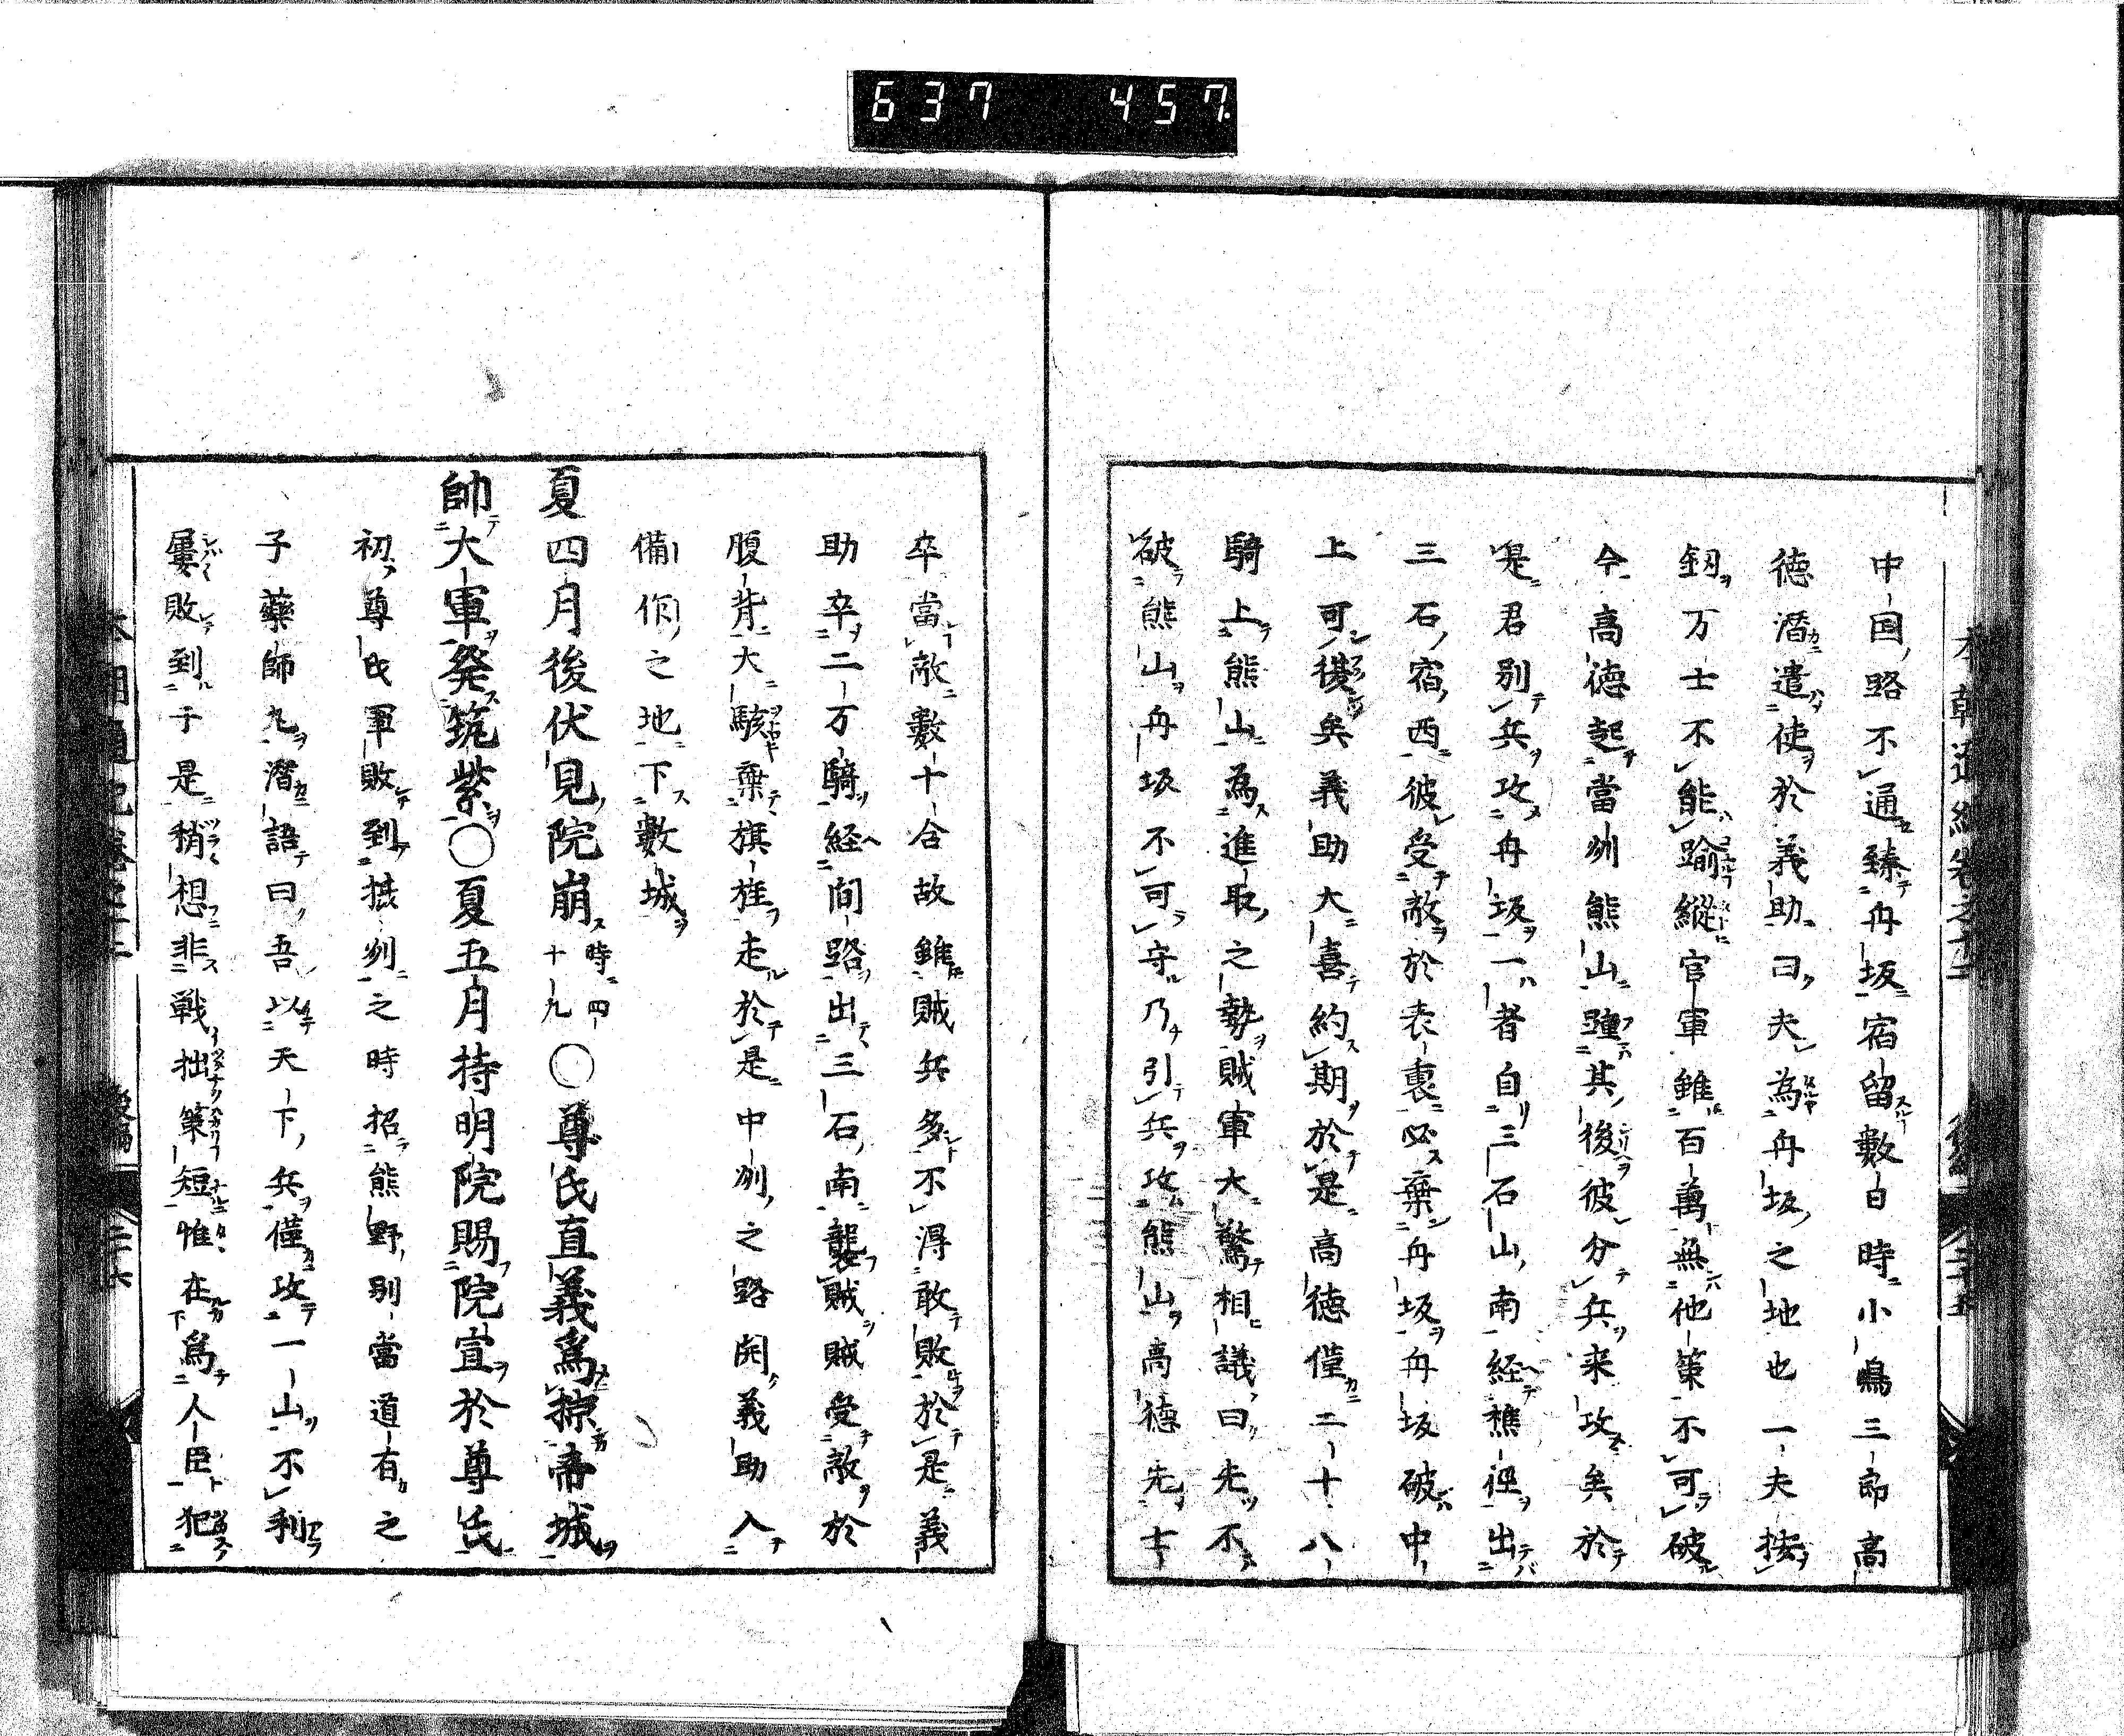 637 457
中国路不通臻舟坂宿留數日時小嶋三郎高
徳潛遣使於義助曰夫為舟坂之地也一夫按
釼万士不能踰縦官軍雖百萬無他策不可破
今高徳起當州熊山踵其後彼分兵来攻矣於
是君別兵攻舟坂一者自三石山南経樵徑出
三石宿西彼受敵於表裏必棄舟坂舟坂破中
上可復矣義助大喜約期於是高徳僅二十八
騎上熊山為進取之勢賊軍大驚相議曰先不
破熊山舟坂不可守乃引兵攻熊山高徳先士
卒當敵數十合故雖賊兵多不得敢敗於是義
助卒二万騎経間路出三石南襲賊賊受敵於
腹背大駭棄旗旌走於是中州之路開義助入
備作之地下數城
夏四月後伏見院崩時四十九○尊氏直義為掠帝城
帥大軍発筑紫○夏五月持明院賜院宣於尊氏
初尊氏軍敗到摂州之時招熊野別當道有之
子藥師丸潛語曰吾以天下兵僅攻一山不利
屢敗到于是稍想非戦拙策短惟在為人臣犯